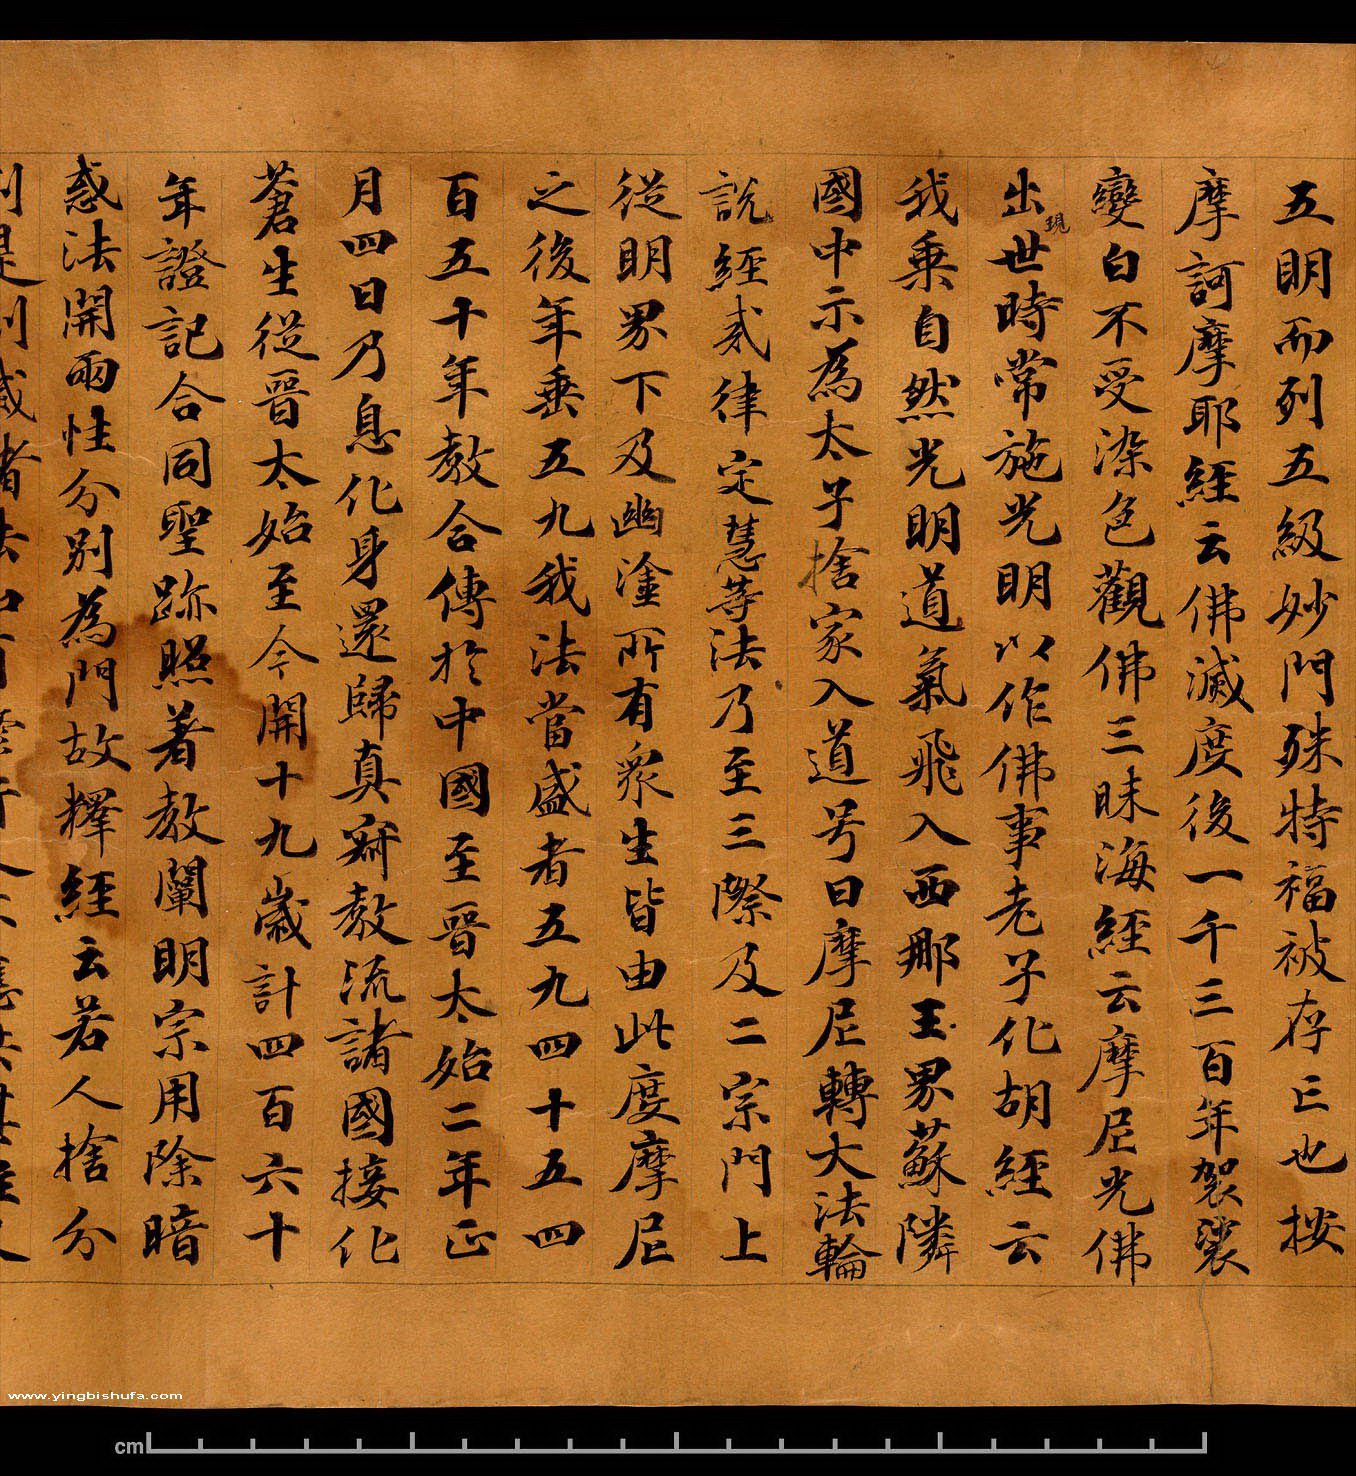 五明而列五級妙門殊特福被存亡也按
摩訶摩耶經云佛滅度後一千三百年袈裟
變白不受染色觀佛三昧海經云摩尼光佛
出世時常施光明以作佛事老子化胡經云
現
我乘自然光明道氣飛入西那玉界蘇隣
國中示為太子捨家入道号曰摩尼轉大法輪
說經戒律定慧等法乃至三際及二宗門上
從明界下及幽塗所有衆生皆由此度摩尼
之後年垂五九我法當盛者五九四十五四
百五十年教合傳於中國至晉太始二年正
月四日乃息化身還歸真寂教流諸國接化
蒼生從晉太始至今開十九歲計四百六十
年證記合同聖跡照著教闡明宗用除暗
惑法開兩性分別為門故釋經云若人捨分
www.yingbishufa.com
cm